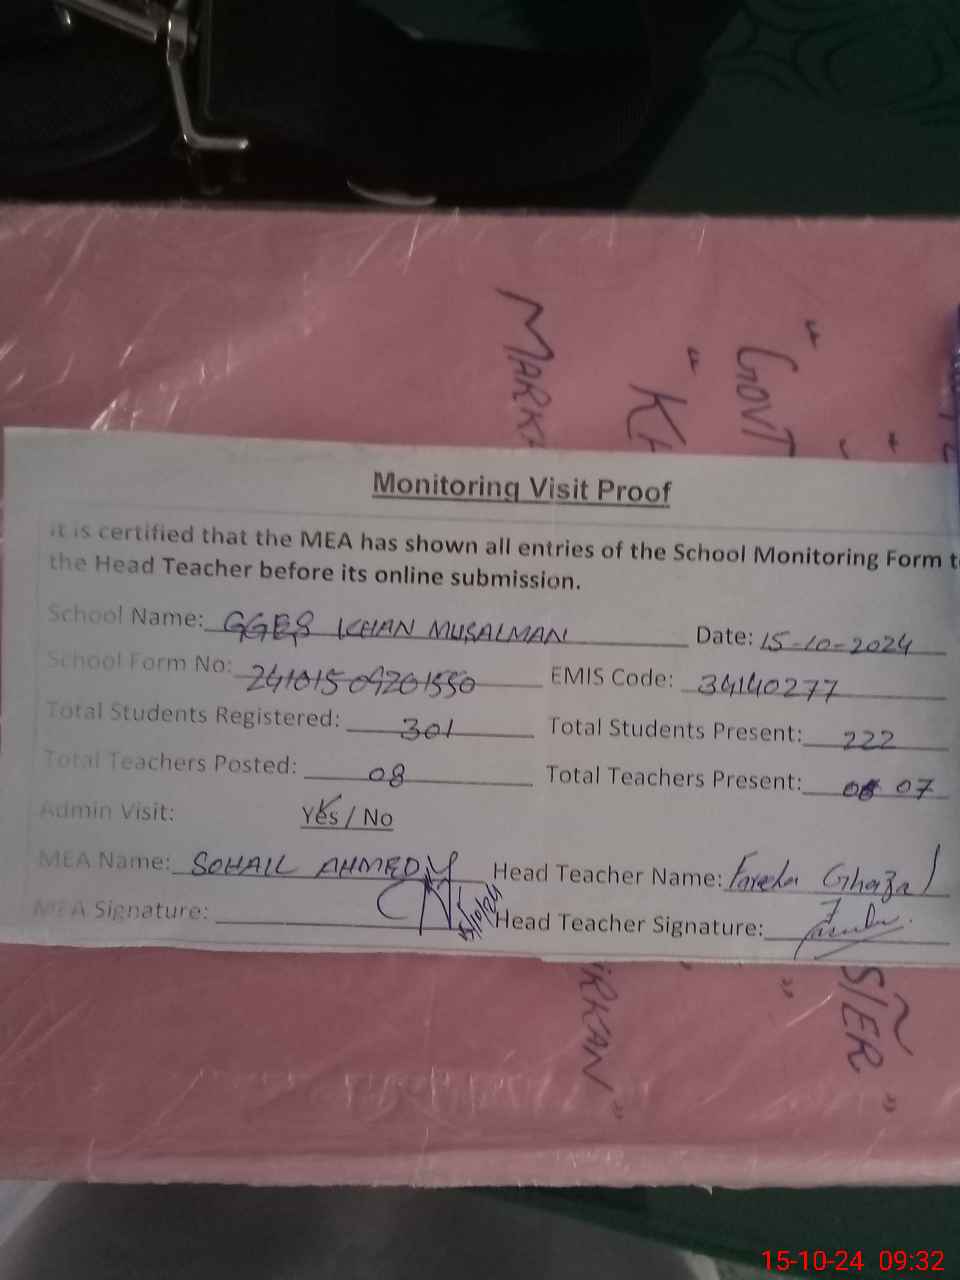 MARKA
" KA
" GOVT
Monitoring Visit Proof
It is certified that the MEA has shown all entries of the School Monitoring Form to
the Head Teacher before its online submission.
School Name: GGES KHAN MUSALMAN Date: 15-10-2024
School Form No: 24101509201550 EMIS Code: 34140277
Total Students Registered: 301 Total Students Present: 222
Total Teachers Posted: 08 Total Teachers Present: 07
Admin Visit: Yes / No
MEA Name: SOHAIL AHMED Head Teacher Name: Ghazal
MEA Signature: 15/10/24 Head Teacher Signature:
IRKAN "
"
SIER "
15-10-24 09:32